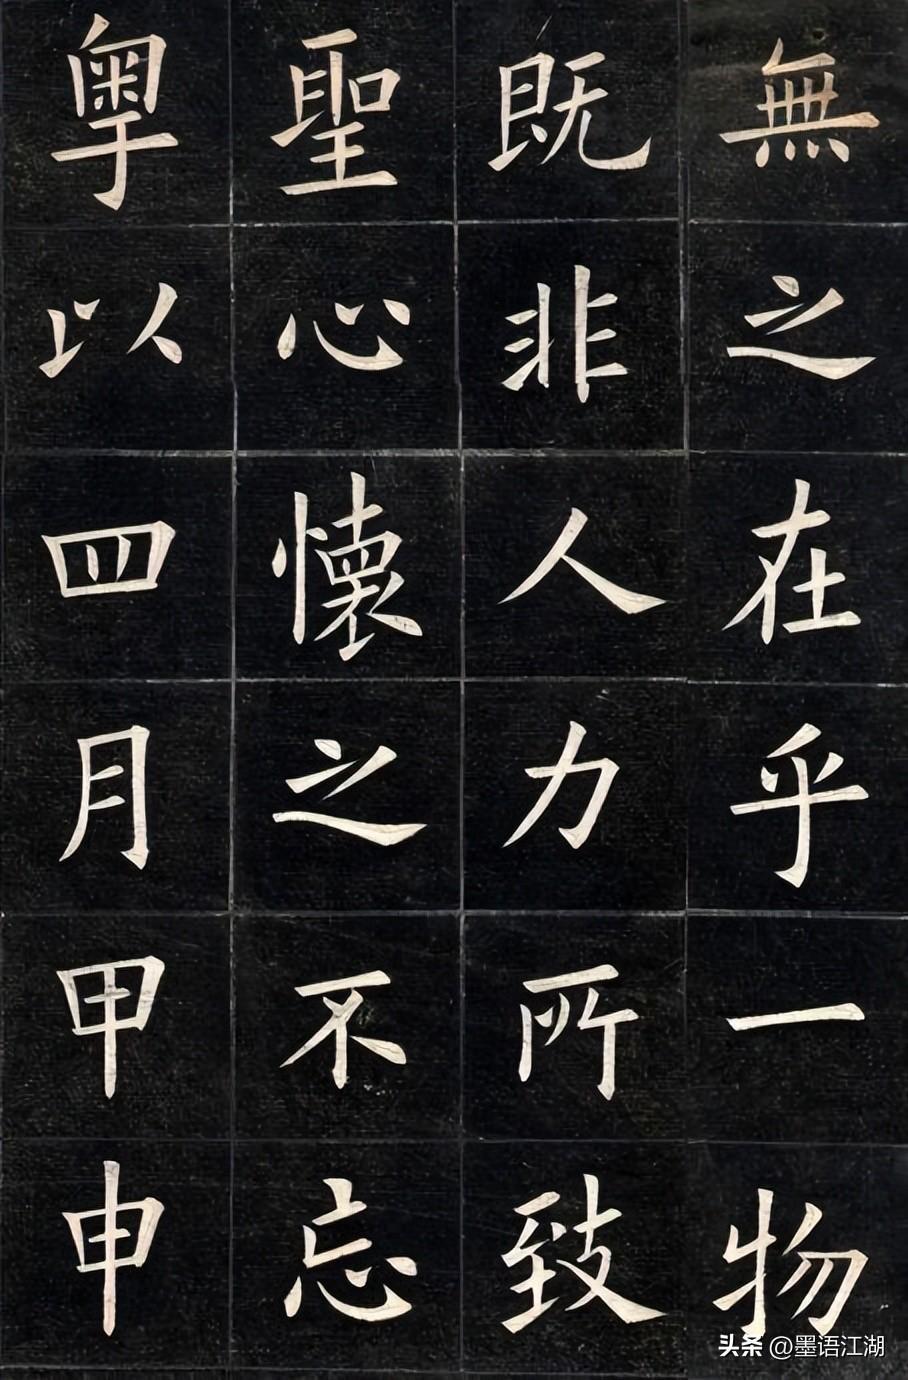 無之在乎一物
既非人力所致
聖心懷之不忘
粤以四月甲申
头条 @墨语江湖